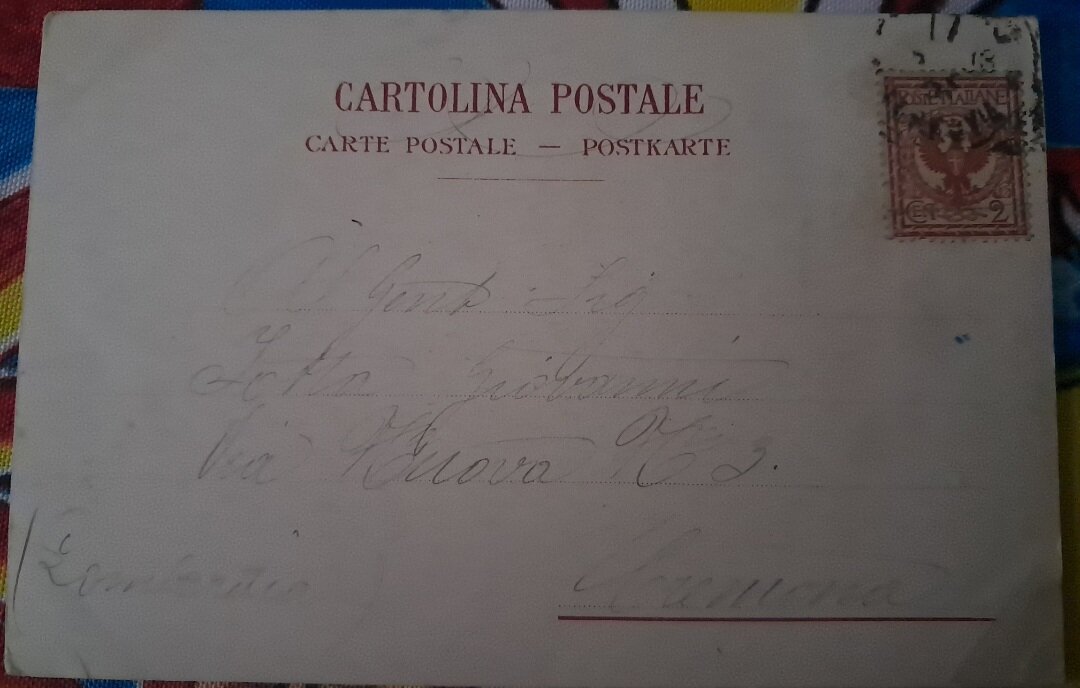 CARTOLINA POSTALE
CARTE POSTALE — POSTKARTE
POSTE ITALIANE
CENT 2
All Gent Sig
Giovanni
Via Nuova N 3.
(Lombardia)
Cremona